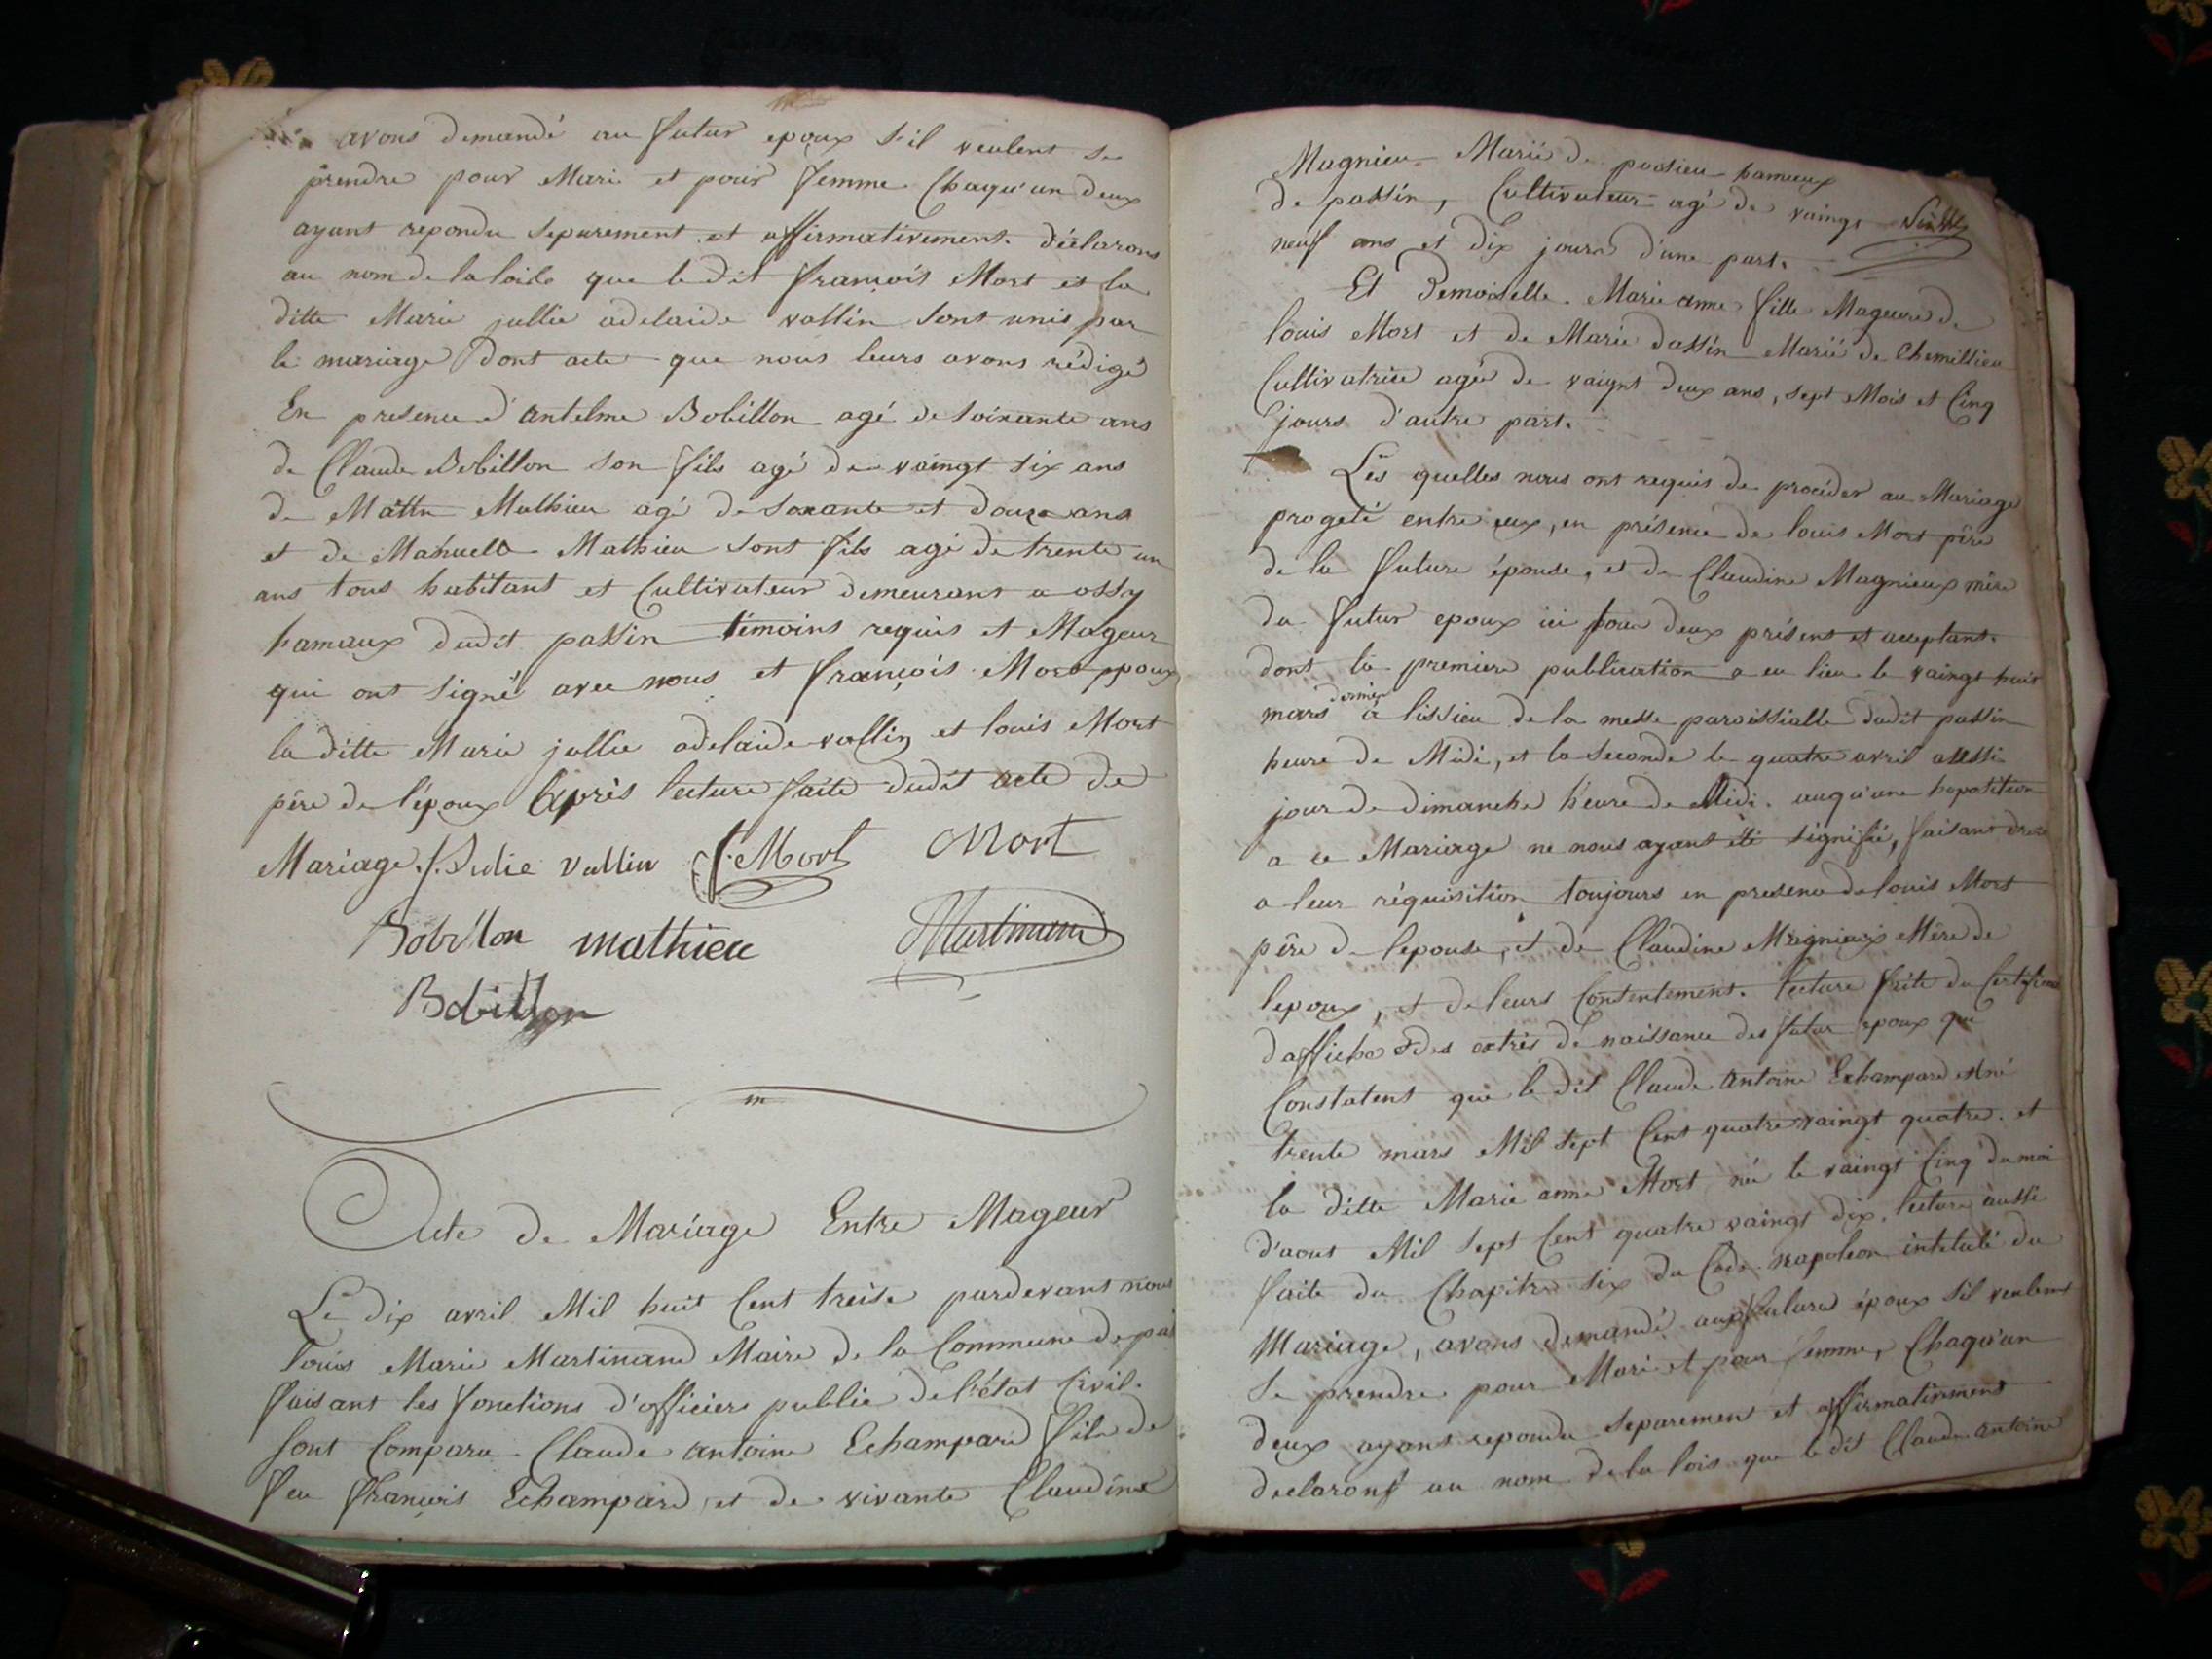 avons demandé au futur epoux s'il veulent se
prendre pour Mari et pour femme Chaqu'un deux
ayant repondu separement et affirmativement. déclarons
au nom de la loi que le dit françois Mort et la
ditte Marie jullie adelaide vallin sont unis par
le mariage dont acte que nous leurs avons rédigé
En presence d'antelme Bobillon agé de soixante ans
de Claude Bobillon son fils agé de vaingt six ans
de Mathieu agé de soxante et douze ans
et de Mathieu sont fils agé de trente un
ans tous habitant et Cultivateur demeurant a ossy
hamaux dudit passin témoins requis et Mageur
qui ont signé avec nous et françois Mort epoux
la ditte Marie jullie adelaide vallin et louis Mort
père de l'époux Après lecture faite dudit acte de
Mariage./. Julie vallin f. Mort Mort
Bobillon mathieu Martinand
Bobillon
Acte de Mariage Entre Mageur
Le dix avril Mil huit Cent treise pardevant nous
louis Marie Martinand Maire de la Commune de pas
faisant les fonctions d'officiers public de l'état Civil.
sont Comparu Claude antoine Echampard fils de
feu françois Echampard, et de vivante Claudine
Magnieu Marié de poisieu hamaux
de passin, Cultivateur agé de vaingt
neuf ans et dix jours d'une part.
Et Demoiselle Marie anne fille Mageure de
louis Mort et de Marie dassin Marié de Chemillieu
Cultivatrice agée de vaignt deux ans, sept Mois et Cinq
jours d'autre part.
Les quelles nous ont requis de procéder au Mariage
progeté entre eux, en présence de louis Mort père
de la future épouse, et de Claudine Magnieux mère
du futur epoux ici tous deux présent et acceptant.
dont la premiere publication a eu lieu le vaingt huit
mars dernier a lissieu de la messe paroissialle dudit passin
heure de Midi, et la seconde le quatre avril aussi
jour de dimanche h'eure de Midi. auqu'une hopotition
a ce Mariage ne nous ayant été signifié, faisant droit
a leur réquisition toujours en presence de louis Mort
père de lepouse, et de Claudine Magnieux Mère de
lepoux, et de leurs Consentement. lecture faite du Certificat
daffiche des extrés de naissance des futur epoux qui
Constatent que le dit Claude antoine Echampard est né
trente mars Mil sept Cent quatre vaingt quatre. et
la ditte Marie anne Mort née le vaingt Cinq du moi
d'aout Mil sept Cent quatre vaingt dix, lecture aussi
faite du Chapitre six du Code napoleon intitulé du
Mariage, avons demandé aux futurs époux s'il veulent
se prendre pour Mari et pour femme, Chaqu'un
deux ayant repondu separement et affirmativement
declarons au nom de la lois que le dit Claude antoine